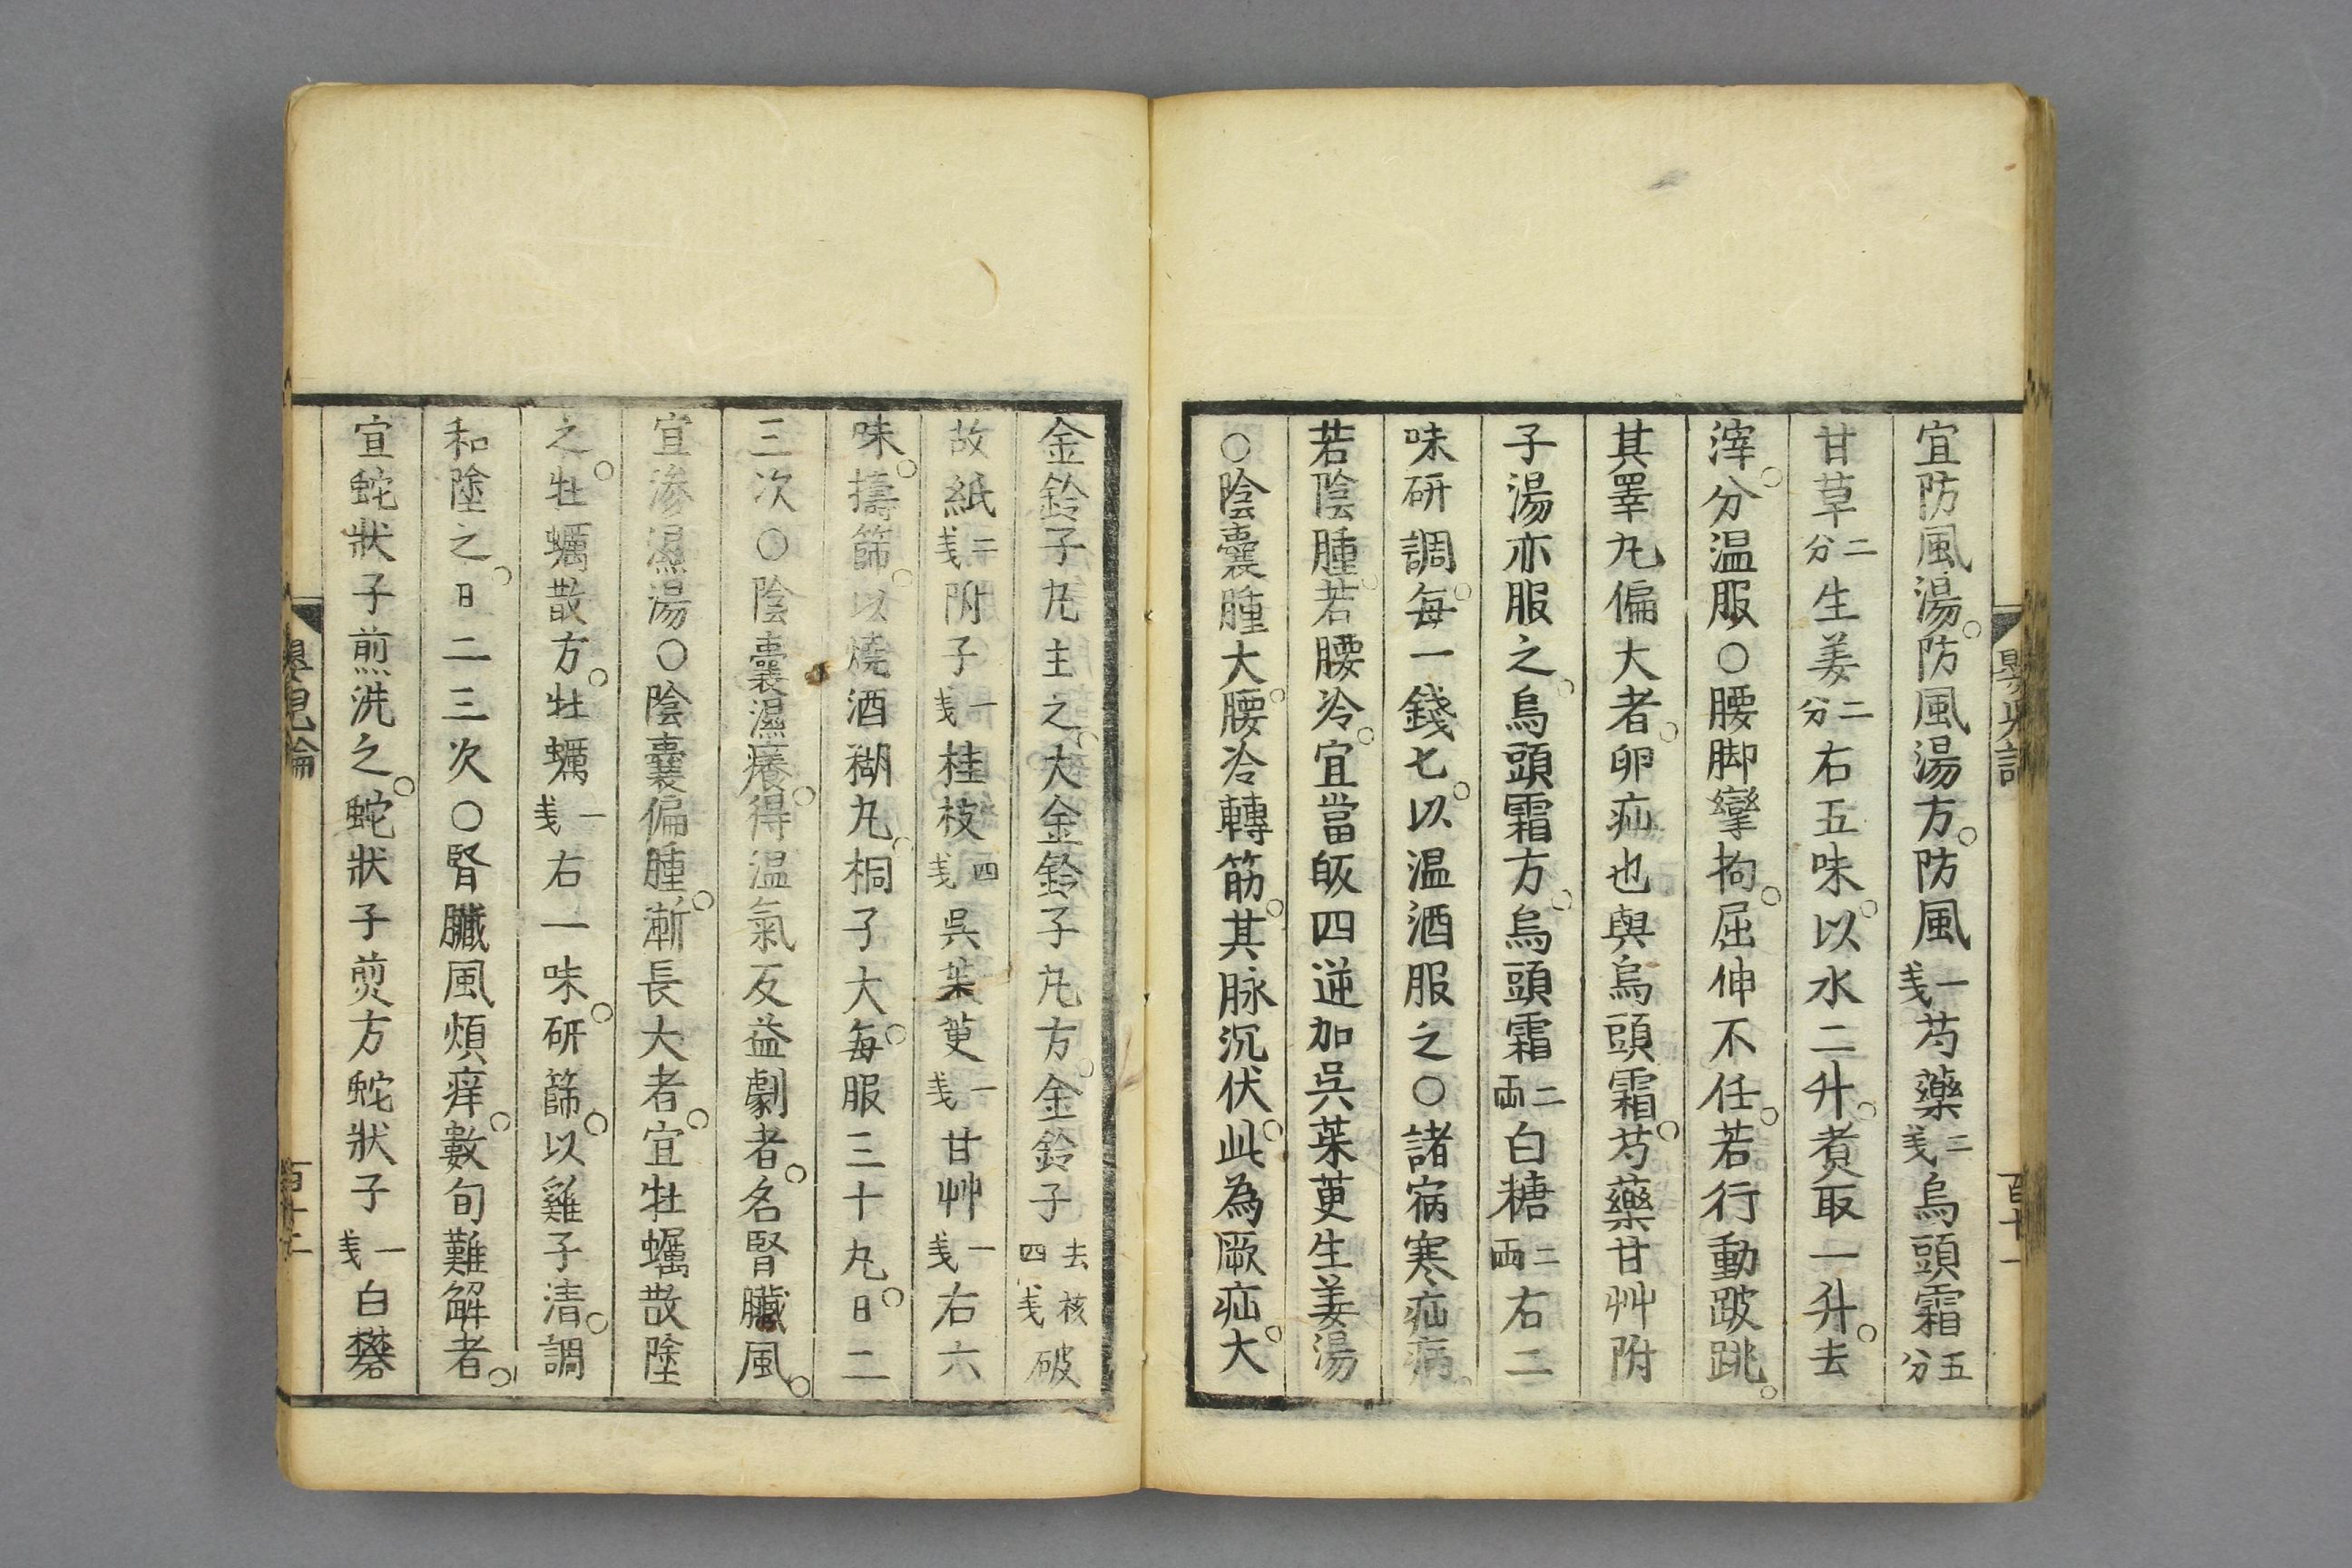 宜防風湯。防風湯方。防風一戔芍藥二戔烏頭霜五分
甘草二分生姜二分右五味。以水二升。煮取一升。去
滓。分温服○腰脚攣拘。屈伸不任。若行動跛跳。
其睪丸偏大者。卵疝也與烏頭霜。芍藥甘艸附
子湯亦服之。烏頭霜方。烏頭霜二両白糖二両右二
味研調。每一錢匕。以温酒服之○諸病寒疝病。
若陰腫。若腰冷。宜當皈四逆加呉茱萸生姜湯
○陰囊腫大。腰冷轉筋。其脉沉伏。此為厥疝。大
金鈴子丸主之。大金鈴子丸方。金鈴子去核四戔破
故紙二戔附子一戔桂枝四戔呉茱萸一戔甘艸一戔右六
味。擣篩。以燒酒糊丸。桐子大。每服三十丸。日二
三次○陰囊濕癢。得温氣反益劇者。名腎臟風。
宜滲濕湯○陰囊偏腫。漸長大者。宜牡蠣散塗
之。牡蠣散方。牡蠣一戔右一味。研篩。以雞子清。調
和塗之。日二三次○腎臟風煩痒。數旬難解者。
宜蛇狀子煎洗之。蛇狀子煎方蛇狀子一戔白礬